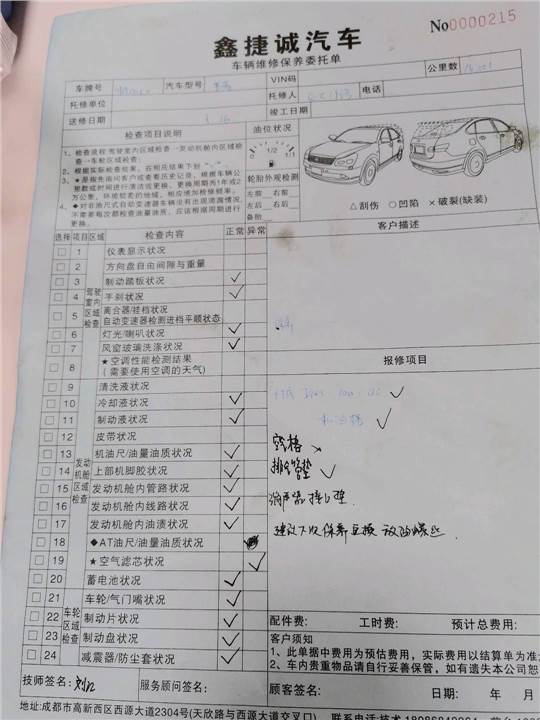 No0000215
鑫捷诚汽车
车辆维修保养委托单
公里数
车牌号 汽车型号 VIN码
托修单位 托修人 电话
送修日期 竣工日期
检查项目说明 油位状况
1、检查流程:驾驶室内区域检查→发动机舱内区域检查→车轮区域检查.
2、根据实际检查结果,在相应结果下划
3、★是指先询问客户或查看历史记录,根据车辆公里数或时间进行清洁或更换。更换周期为1年或2万公里,环境较差的地域,相应增加检修频率。
4、◆对非油尺式自动变速器车辆没有出现泄漏情况,不需要每次都检查油量油质,应该根据周期进行更换。
0 1/2 1
轮胎外观检测
左前 右前
左后 右后
备胎
△刮伤 〇凹陷 ×破裂(缺装)
选择 项目 区域 检查内容 正常 异常 客户描述
驾驶室内区域检查
1 仪表显示状况
2 方向盘自由间隙与重量
3 制动踏板状况 ✓
4 手刹状况 ✓
5 离合器/挂档状况
自动变速器检测进档平顺状态
6 灯光/喇叭状况 ✓
7 风窗玻璃洗涤状况 ✓
8 ★空调性能检测结果
(需要使用空调的天气)
报修项目
发动机舱区域检查
9 清洗液状况
10 冷却液状况 ✓
11 制动液状况 ✓
12 皮带状况
13 机油尺/油量油质状况 ✓
14 上部机脚胶状况 ✓
15 发动机舱内管路状况 ✓
16 发动机舱内线路状况 ✓
17 发动机舱内油渍状况 ✓
18 ◆AT油尺/油量油质状况
19 ★空气滤芯状况 ✓
20 蓄电池状况 ✓
车轮区域检查
21 车轮/气门嘴状况 ✓
22 制动片状况 ✓
23 制动盘状况 ✓
24 减震器/防尘套状况 ✓
机油格 ✓
空格
排气管垫 ✓
消声器接口垫
建议下次保养更换放油螺丝
配件费: 工时费: 预计总费用:
客户须知
1、此单据中费用为预估费用,实际费用以结算单为准
2、车内贵重物品请自行妥善保管,如有遗失本公司恕
技师签名: 服务顾问签名: 顾客签名: 日期: 年 月
地址:成都市高新西区西源大道2304号(天欣路与西源大道交叉口)